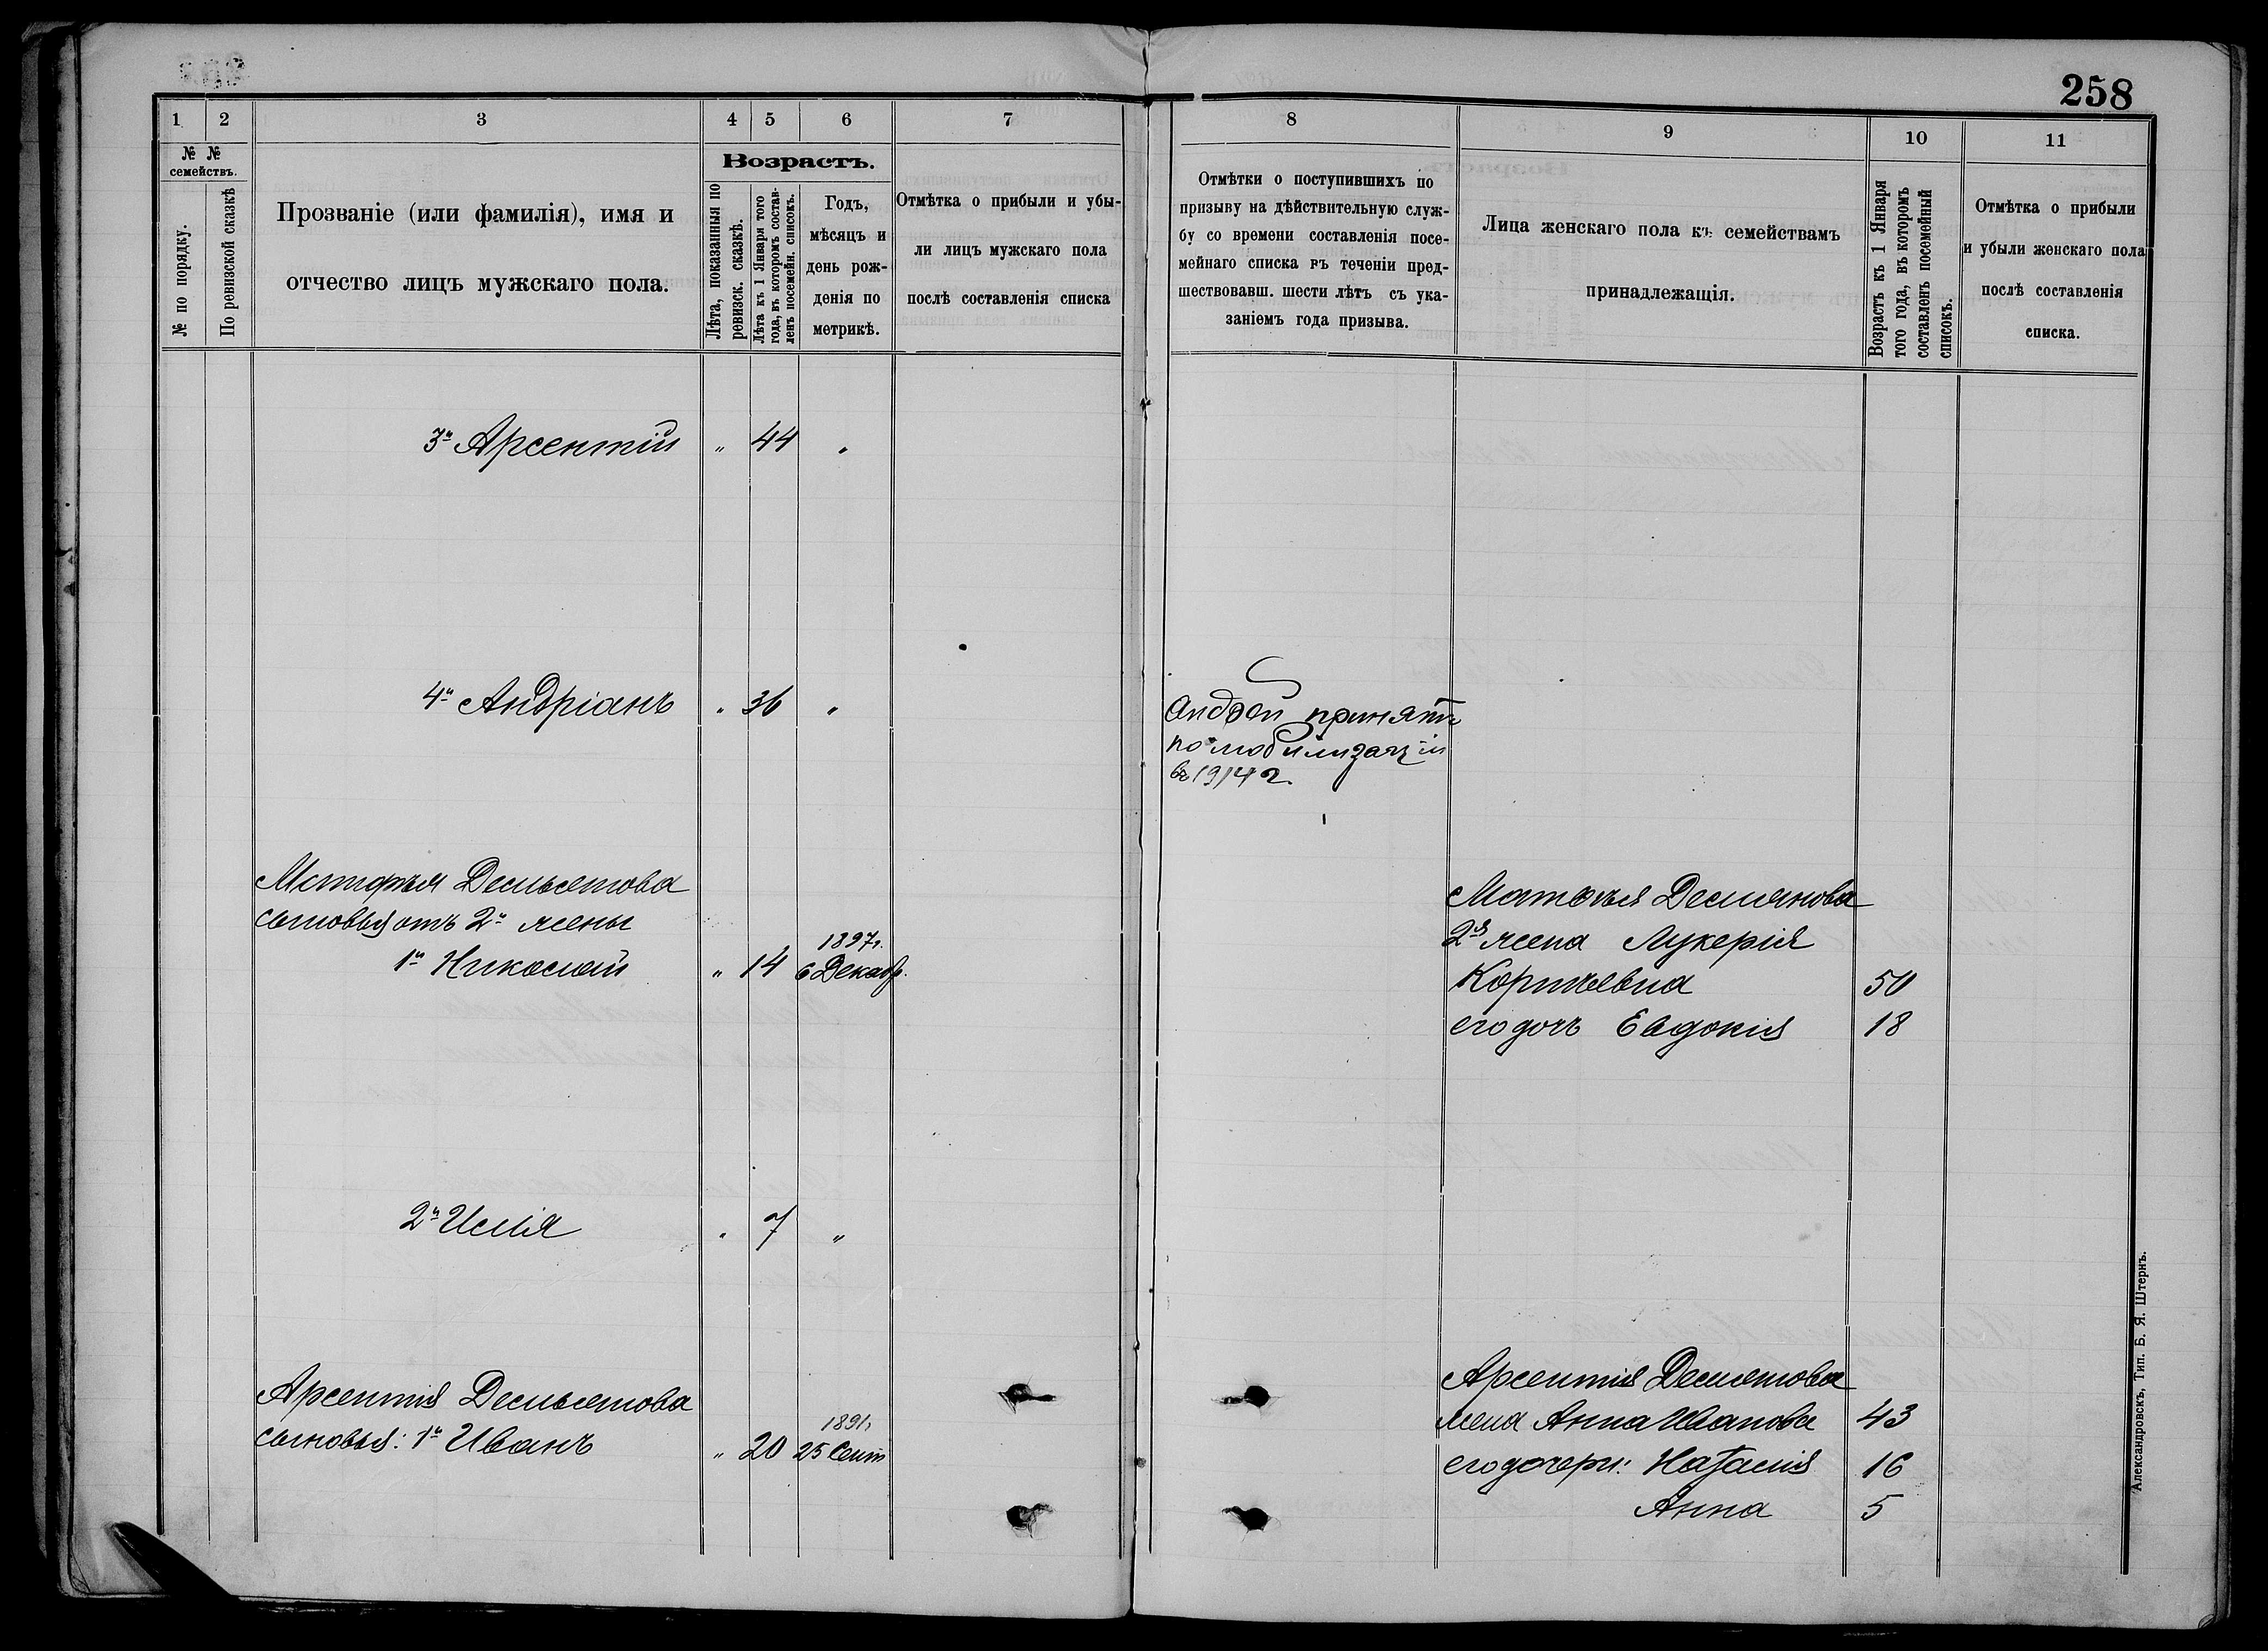 258
1 2 3 4 5 6 7
№ № семействъ.
№ по порядку.
По ревизской сказкѣ
Прозваніе (или фамилія), имя и
отчество лицъ мужскаго пола.
Возрастъ.
Лѣта, показанныя по
ревизск. сказкѣ.
Лѣта къ 1 Января того
года, въ которомъ состав-
ленъ посемейн. списокъ.
Годъ,
мѣсяцъ и
день рож-
денія по
метрикѣ.
Отмѣтка о прибыли и убы-
ли лицъ мужскаго пола
послѣ составленія списка
3й Арсентій " 44 "
4й Андріанъ " 36 "
сыновья отъ 2й жены
1897г.
1й Николай " 14 6 Декабр.
2й Илія " 7 "
Арсентія
1891г
сыновья: 1й Иванъ " 20 25 Сент
8 9 10 11
Отмѣтки о поступившихъ по
призыву на дѣйствительную служ-
бу со времени составленія посе-
мейнаго списка въ теченіи пред-
шествовавш. шести лѣтъ съ ука-
заніемъ года призыва.
Лица женскаго пола къ семействамъ
принадлежащія.
Возрастъ къ 1 Января
того года, въ которомъ
составленъ посемейный
списокъ.
Отмѣтка о прибыли
и убыли женскаго пола
послѣ составленія
списка.
принятъ
по мобилизаціи
въ 1914 г.
2я жена Лукерія
50
его дочь Евдокія 18
Арсентія
жена Анна Иванова 43
его дочери: Наталія 16
Анна 5
Александровскъ, Тип. Б. Я. Штернъ.